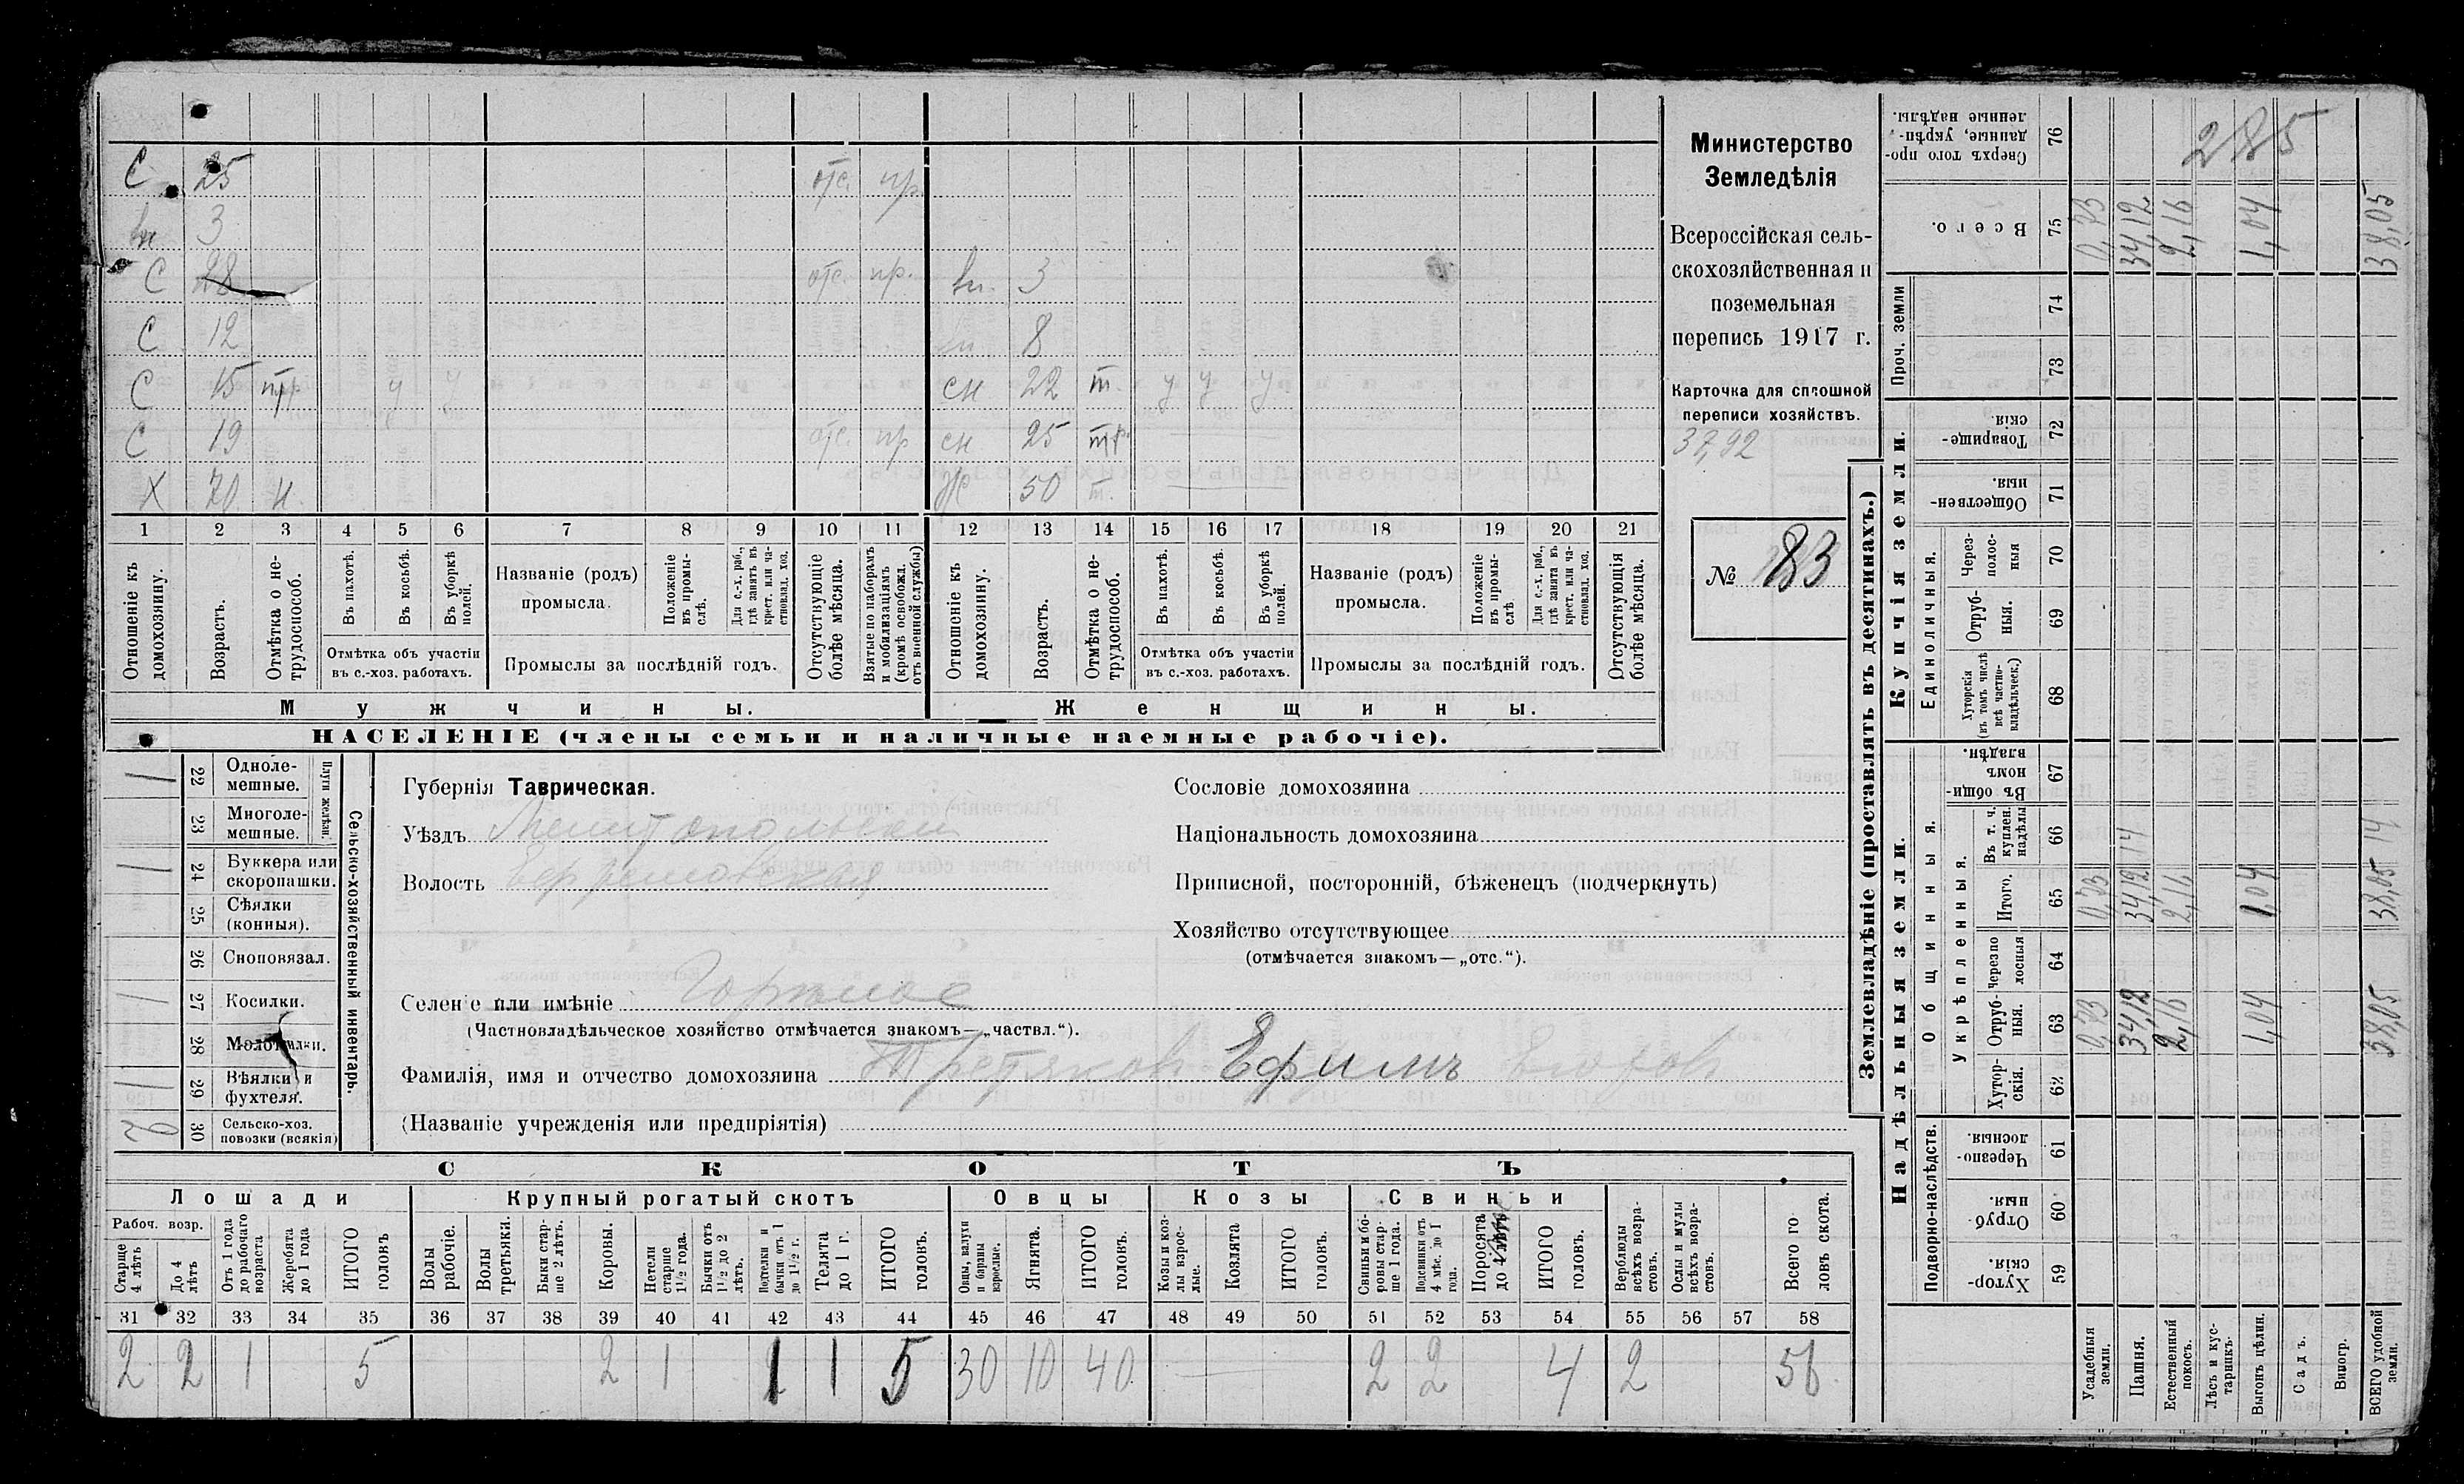 С 25 отс. пр.
вн 3
С 28 отс. пр. вн. 3
С 12 вн 8
С 15 тр. у у сн 22 т. у у у
С 19 отс. пр сн 25 тр.
Х 70 н Ж 50 т.
1 2 3 4 5 6 7 8 9 10 11 12 13 14 15 16 17 18 19 20 21
Отношеніе къ домохозяину.
Возрастъ.
Отмѣтка о нетрудоспособ.
Въ пахотѣ.
Въ косьбѣ.
Въ уборкѣ полей.
Отмѣтка объ участіи
въ с.-хоз. работахъ.
Названіе (родъ)
промысла.
Положеніе въ промыслѣ.
Для с.-х. раб., гдѣ занятъ въ крест. или частновлад. хоз.
Промыслы за послѣдній годъ.
Отсутствующіе болѣе мѣсяца.
Взятые по наборамъ и мобилизаціямъ (кромѣ освобожд. отъ военной службы)
Отношеніе къ домохозяину.
Возрастъ.
Отмѣтка о нетрудоспособ.
Въ пахотѣ.
Въ косьбѣ.
Въ уборкѣ полей.
Отмѣтка объ участіи
въ с.-хоз. работахъ.
Названіе (родъ)
промысла.
Положеніе въ промыслѣ
Для с.-х. раб., гдѣ занята въ крест. или частновлад. хоз.
Промыслы за послѣдній годъ.
Отсутствующія болѣе мѣсяца.
Мужчины.
Женщины.
НАСЕЛЕНІЕ (члены семьи и наличные наемные рабочіе).
Министерство
Земледѣлія
Всероссійская сель-
скохозяйственная и
поземельная
перепись 1917 г.
Карточка для сплошной
переписи хозяйствъ.
37,92
№ 83
1 22 Однолемешные.
23 Многолемешные.
Плуги желѣзн.
1 24 Буккера или скоропашки.
25 Сѣялки (конныя).
26 Сноповязал.
1 27 Косилки.
28 Молотилки.
1 29 Вѣялки и фухтеля.
30 Сельско-хоз. повозки (всякія)
Сельско-хозяйственный инвентарь.
Губернія Таврическая.
Уѣздъ Мелитопольскій
Волость Ефремовская
Селеніе или имѣніе Горѣлое
(Частновладѣльческое хозяйство отмѣчается знакомъ—„частвл.“).
Фамилія, имя и отчество домохозяина Третяков Ефимъ
(Названіе учрежденія или предпріятія)
Сословіе домохозяина
Національность домохозяина
Приписной, посторонній, бѣженецъ (подчеркнуть)
Хозяйство отсутствующее
(отмѣчается знакомъ—„отс.“).
СКОТЪ
Лошади Крупный рогатый скотъ Овцы Козы Свиньи
Рабоч. возр.
Старше 4 лѣтъ
До 4 лѣтъ
Отъ 1 года до рабочаго возраста
Жеребята до 1 года
ИТОГО головъ
Волы рабочіе.
Волы третьяки.
Быки старше 2 лѣтъ.
Коровы.
Нетели старше 1½ года.
Бычки отъ 1½ до 2 лѣтъ.
Подтелки и бычки отъ 1 до 1½ г.
Телята до 1 г.
ИТОГО головъ.
Овцы, валухи и бараны взрослые.
Ягнята.
ИТОГО головъ.
Козы и козлы взрослые.
Козлята
ИТОГО головъ.
Свиньи и боровы старше 1 года.
Подсвинки отъ 4 мѣс. до 1 года.
Поросята до
ИТОГО головъ.
Верблюды всѣхъ возрастовъ.
Ослы и мулы всѣхъ возрастовъ.
Всего головъ скота.
31 32 33 34 35 36 37 38 39 40 41 42 43 44 45 46 47 48 49 50 51 52 53 54 55 56 57 58
2 2 1 5 2 1 1 1 5 30 10 40 2 2 4 2 56
Землевладѣніе (проставлять въ десятинахъ.)
Надѣльныя земли. Купчія земли.
Подворно-наслѣдств.
Общинныя.
Укрѣпленныя.
Единоличныя.
Проч. земли
Хуторскія. 59
Отрубныя. 60
Черезполосныя. 61
Хуторскія. 62
Отрубныя. 63 0,73 34,12 2,16 1,04 38,05
Черезполосныя 64
Итого. 65 0,73 34,12 2,16 1,04 38,05
Въ т. ч. куплен. надѣлы 66 14 14
Въ общинномъ владѣн. 67
Хуторскія (въ томъ числѣ всѣ частновладѣльческ.) 68
Отрубныя. 69
Черезполосныя 70
Общественныя. 71
Товарищескія 72
73
74
Всего. 75 0,73 34,12 2,16 1,04 38,05
Сверхъ того проданные, укрѣпленные надѣлы. 76
285
Усадебныя земли.
Пашня.
Естественный покосъ.
Лѣсъ и кустарникъ.
Выгонъ цѣлин.
Садъ.
Виногр.
ВСЕГО удобной земли.